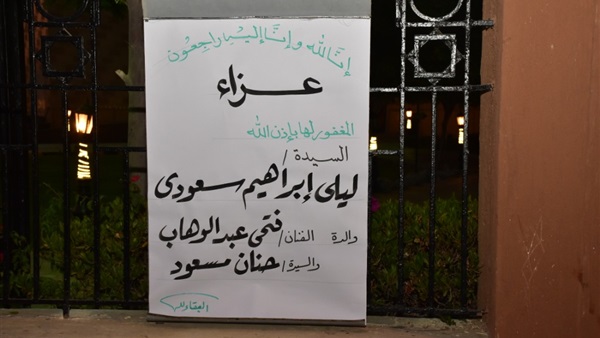 إنا لله وإنا إليه راجعون
عزاء
المغفور لها بإذن الله
السيدة /
ليلى إبراهيم سعودى
والدة الفنان / فتحى عبد الوهاب
والسيدة / حنان مسعود